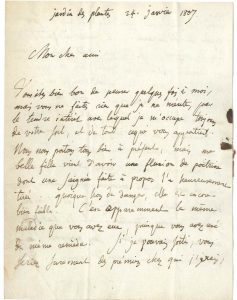 jardin des plantes, 24 janvier 1807
Mon cher ami
Vous êtes bien bon de penser quelques fois à moi,
mais vous ne faites rien que je ne mérite, par
le tendre intérêt avec lequel je m'occupe toujours
de votre sort, et de tout ce qui vous appartient.
Nous nous portons bien à présent, mais ma
belle fille vient d'avoir une fluxion de poitrine
dont une saignée faite à propos l'a heureusement
tirée; quoique hors de danger, elle est encore
bien faible. C'est apparemment la même
maladie que vous avez eue, puisque vous avez usé
du même remède. Si je pouvais sortir, vous
seriez surement des premiers chez qui j'irais,